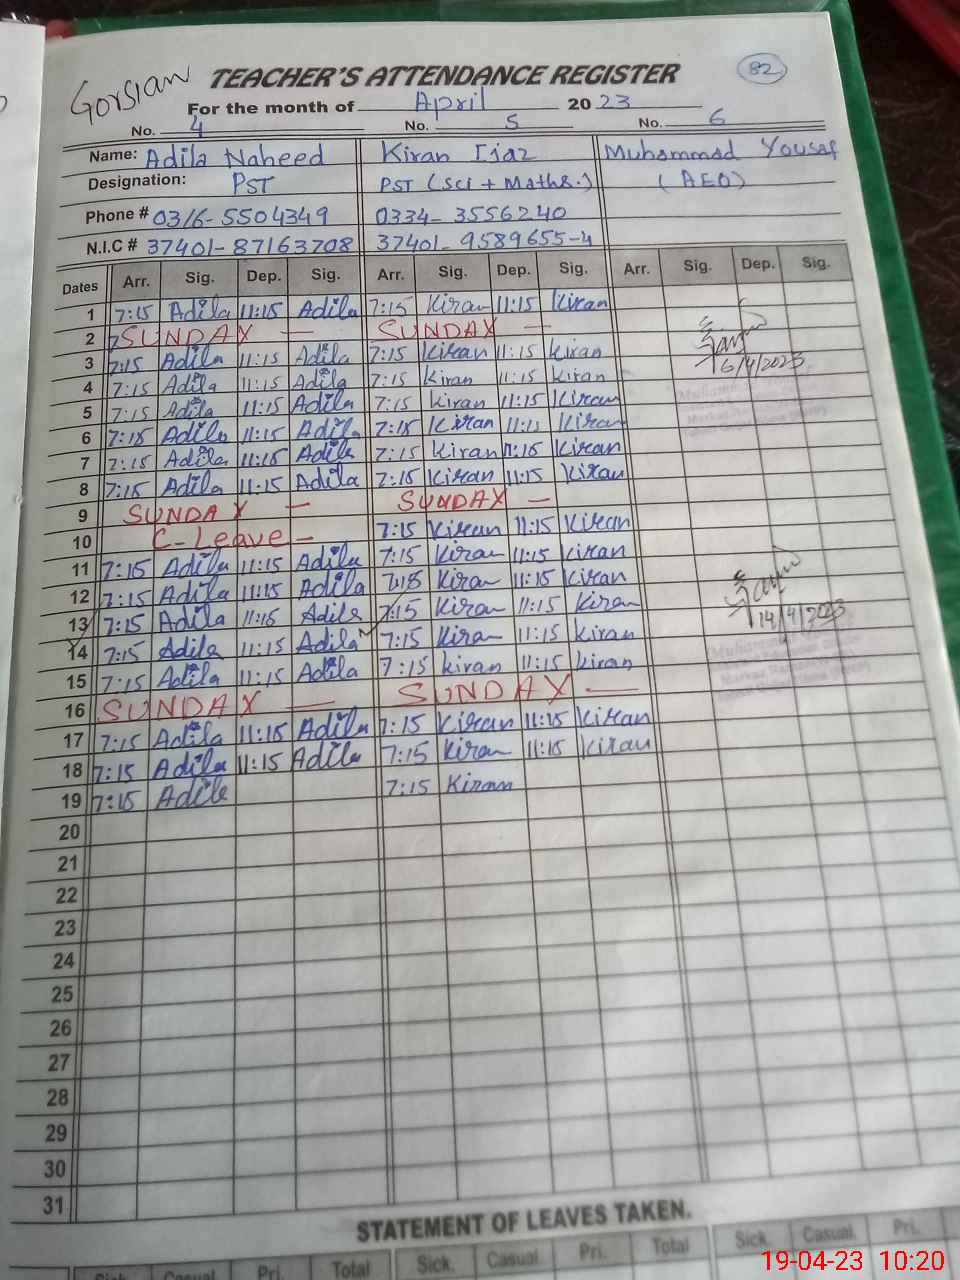 Gorsian
TEACHER'S ATTENDANCE REGISTER 82
For the month of April 2023
No. 4 No. 5 No. 6
Name: Adila Naheed Kiran Ijaz Muhammad Yousaf
Designation: PST PST (Sci + Maths.) (AEO)
Phone # 0316-5504349 0334-3556240
N.I.C # 37401-87163708 37401-9589655-4
Dates Arr. Sig. Dep. Sig. Arr. Sig. Dep. Sig. Arr. Sig. Dep. Sig.
1 7:15 Adila 11:15 Adila 7:15 Kiran 11:15 Kiran
2 SUNDAY — SUNDAY —
3 7:15 Adila 11:15 Adila 7:15 Kiran 11:15 Kiran
6/4/2023
4 7:15 Adila 11:15 Adila 7:15 Kiran 11:15 Kiran
5 7:15 Adila 11:15 Adila 7:15 Kiran 11:15 Kiran
6 7:15 Adila 11:15 Adila 7:15 Kiran 11:15 Kiran
7 7:15 Adila 11:15 Adila 7:15 Kiran 11:15 Kiran
8 7:15 Adila 11:15 Adila 7:15 Kiran 11:15 Kiran
9 SUNDAY — SUNDAY —
10 C-Leave — 7:15 Kiran 11:15 Kiran
11 7:15 Adila 11:15 Adila 7:15 Kiran 11:15 Kiran
12 7:15 Adila 11:15 Adila 7:15 Kiran 11:15 Kiran
13 7:15 Adila 11:15 Adila 7:15 Kiran 11:15 Kiran
14/4/2023
14 7:15 Adila 11:15 Adila 7:15 Kiran 11:15 Kiran
15 7:15 Adila 11:15 Adila 7:15 Kiran 11:15 Kiran
16 SUNDAY — SUNDAY —
17 7:15 Adila 11:15 Adila 7:15 Kiran 11:15 Kiran
18 7:15 Adila 11:15 Adila 7:15 Kiran 11:15 Kiran
19 7:15 Adila 7:15 Kiran
20
21
22
23
24
25
26
27
28
29
30
31
STATEMENT OF LEAVES TAKEN.
Sick. Casual Pri. Total Sick. Casual Pri. Total Sick. Casual Pri.
19-04-23 10:20